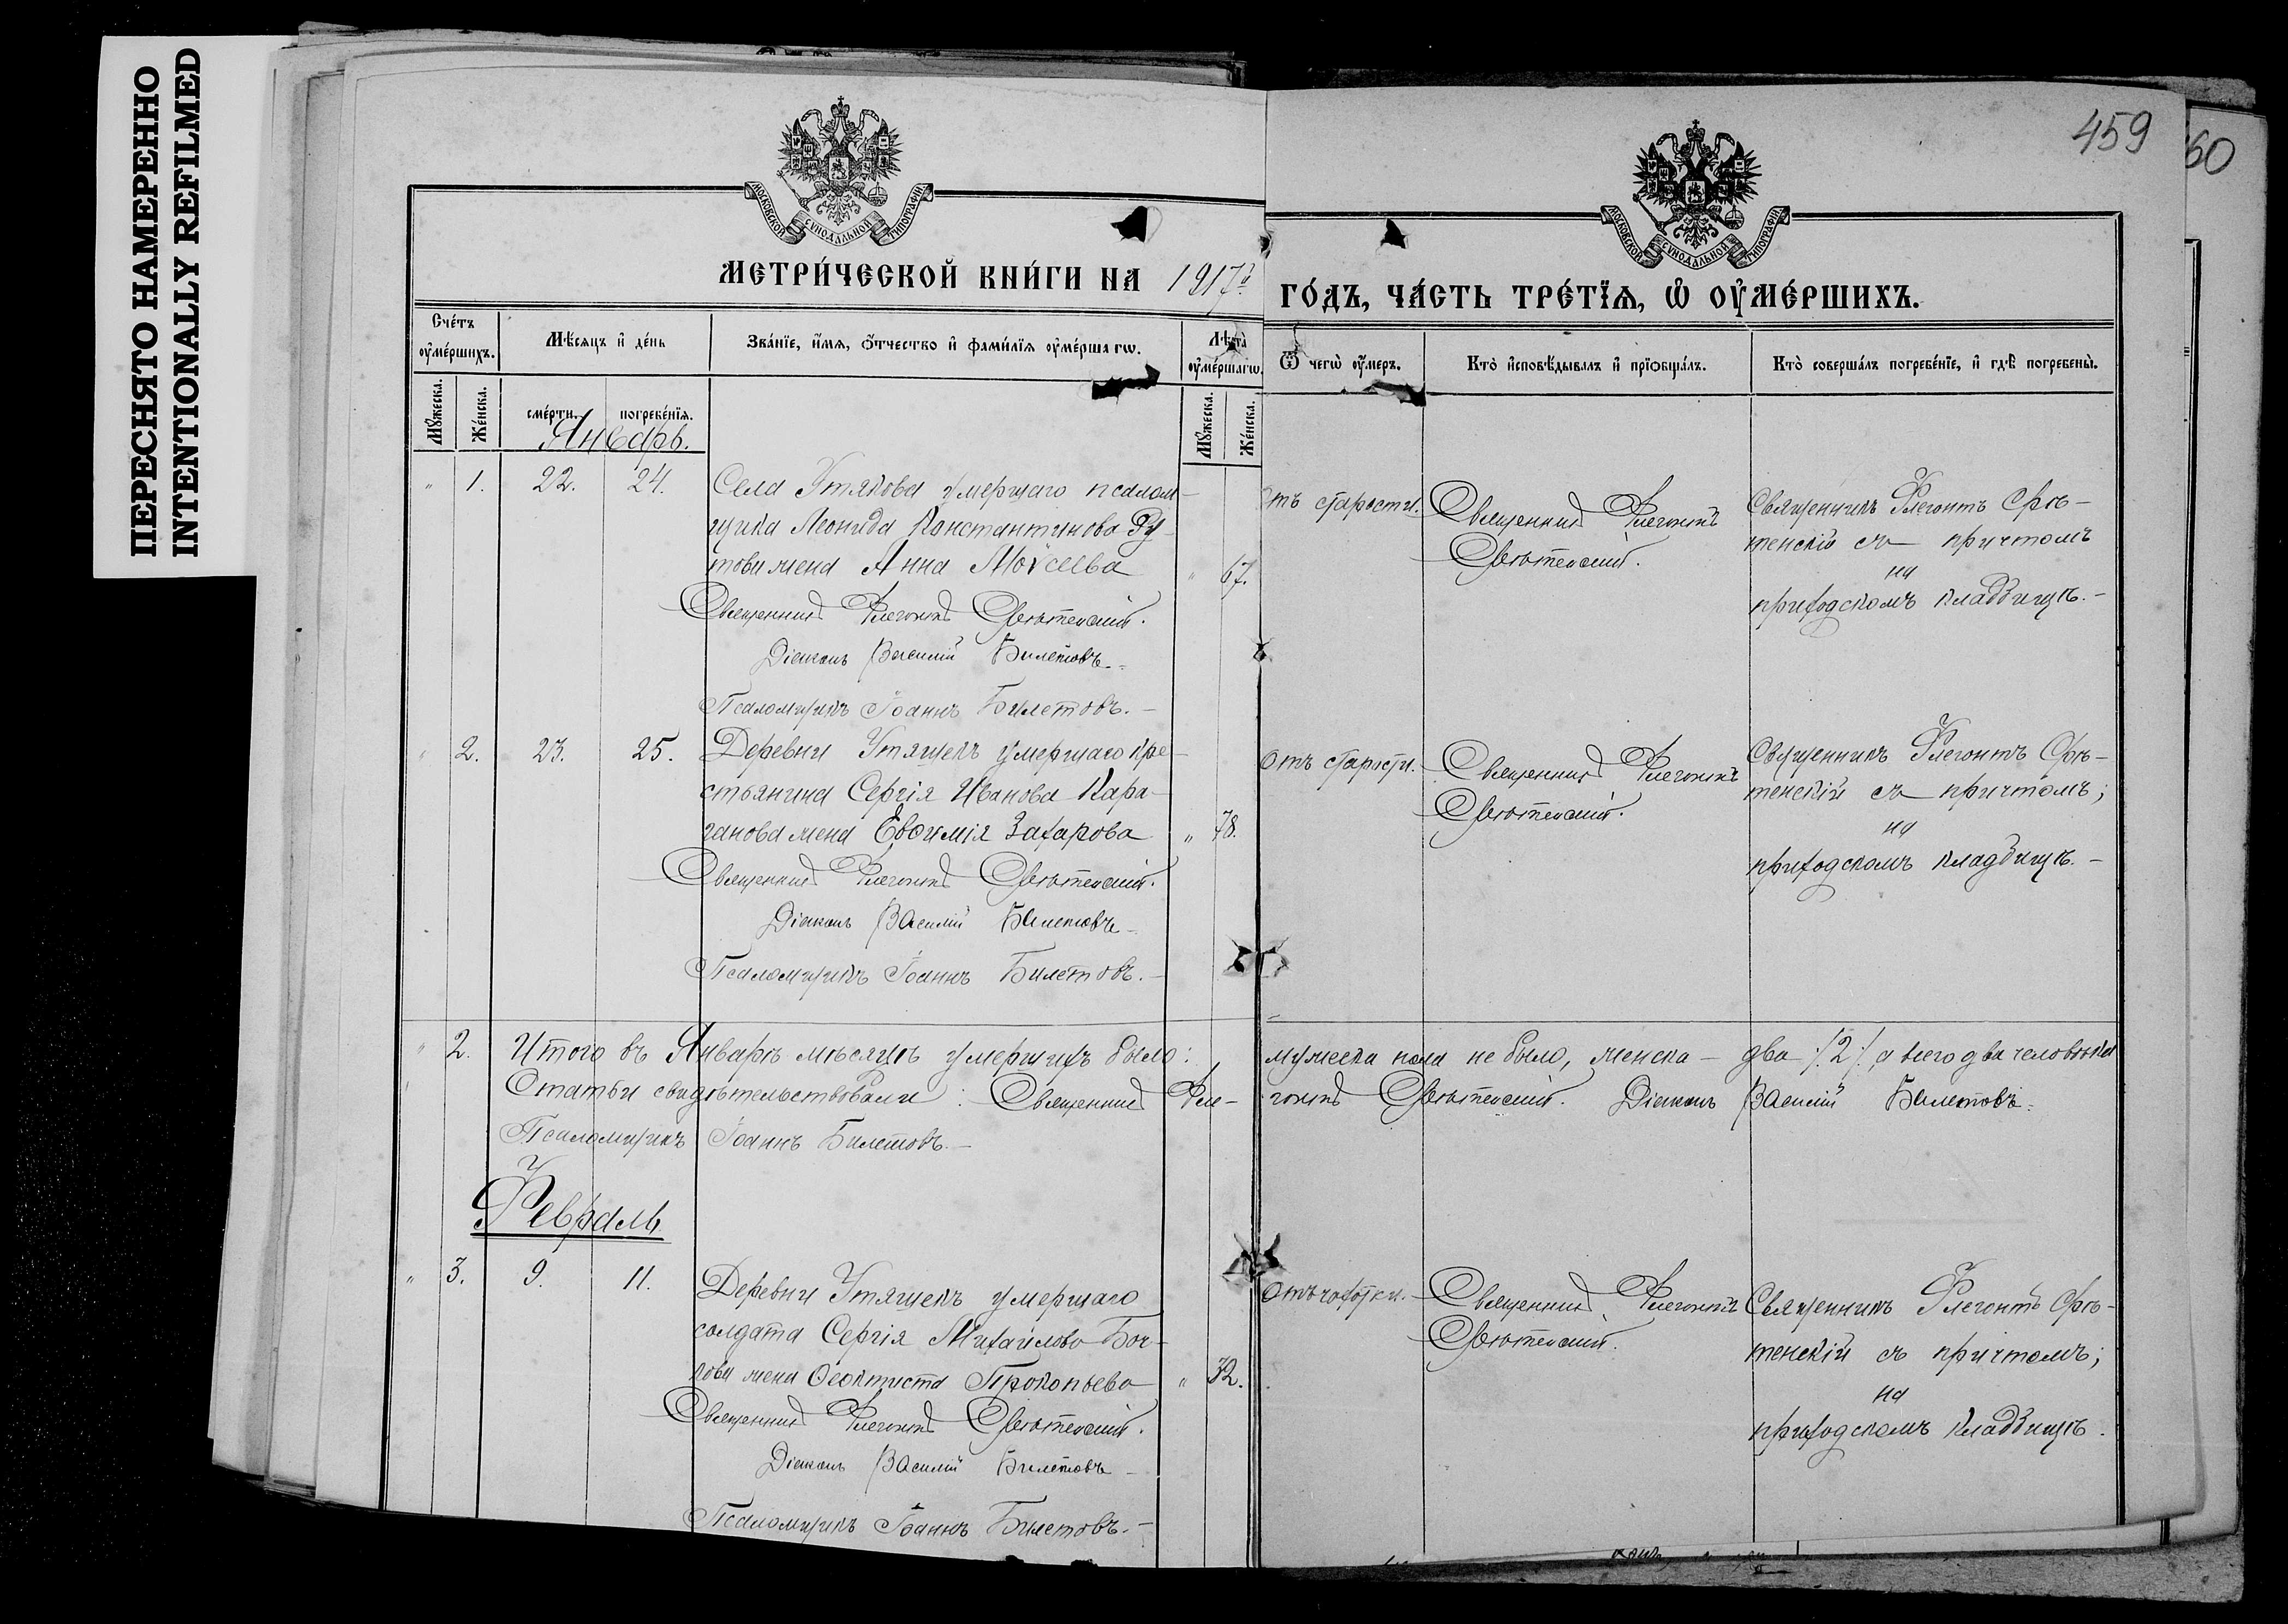 ПЕРЕСНЯТО НАМЕРЕННО
INTENTIONALLY REFILMED
459
60
МОСКОВСКОЙ СѴНОДАЛЬНОЙ ТИПОГРАФІИ
МОСКОВСКОЙ СѴНОДАЛЬНОЙ ТИПОГРАФІИ
МЕТРИ́ЧЕСКОЙ КНИ́ГИ НА 1917й ГО́ДЪ, ЧА́СТЬ ТРЕ́ТІѦ, Ѽ ОУ҆МЕ́РШИХЪ.
Сче́тъ оу҆ме́ршихъ.
Мѣ́сяцъ и҆ де́нь
Зва́нїе, и҆́мѧ, ѻ҆́тчество и҆ фами́лїѧ оу҆ме́ршагѡ.
Лѣ́та оу҆ме́ршагѡ.
Ѿ чегѡ̀ оу҆́меръ.
Кто̀ и҆сповѣ́дывалъ и҆ прїѡбща́лъ.
Кто̀ соверша́лъ погребе́нїе, и҆ гдѣ̀ погребены̀.
Мꙋ́жеска.
Же́нска.
сме́рти.
погребе́нїѧ.
Мꙋ́жеска.
Же́нска.
Январь.
" 1. 22. 24. Села Утякова умершаго псалом-
щика Леонида Константинова
жена Анна Моѵсеева " 67.
Священникъ Флегонтъ Срѣтенскій.
Діаконъ Василій Билетовъ.
Псаломщикъ Іоаннъ Билетовъ.
Отъ старости.
Священникъ Флегонтъ
Срѣтенскій.
Священникъ Флегонтъ Срѣ-
тенскій съ причтомъ
на
приходскомъ кладбищѣ.
" 2. 23. 25. Деревни Утяшекъ умершаго кре-
стьянина Сергія Иванова Кара-
ганова жена Евѳимія Захарова " 78.
Священникъ Флегонтъ Срѣтенскій.
Діаконъ Василій Билетовъ
Псаломщикъ Іоаннъ Билетовъ.
Отъ старости.
Священникъ Флегонтъ
Срѣтенскій.
Священникъ Флегонтъ Срѣ-
тенскій съ причтомъ;
на
приходскомъ кладбищѣ.
" 2. Итого въ Январѣ мѣсяцѣ умершихъ было: мужеска пола не было, женска - два /2/, а всего два человѣка
Статьи свидѣтельствовали: Священникъ Фле-гонтъ Срѣтенскій. Діаконъ Василій Билетовъ.
Псаломщикъ Іоаннъ Билетовъ.
Февраль.
" 3. 9. 11. Деревни Утяшекъ умершаго
солдата Сергія Михайлова Боч-
кова жена Ѳеоктиста Прокопьева " 32.
Священникъ Флегонтъ Срѣтенскій.
Діаконъ Василій Билетовъ
Псаломщикъ Іоаннъ Билетовъ.
Отъ чахотки.
Священникъ Флегонтъ
Срѣтенскій.
Священникъ Флегонтъ Срѣ-
тенскій съ причтомъ;
на
приходскомъ кладбищѣ.